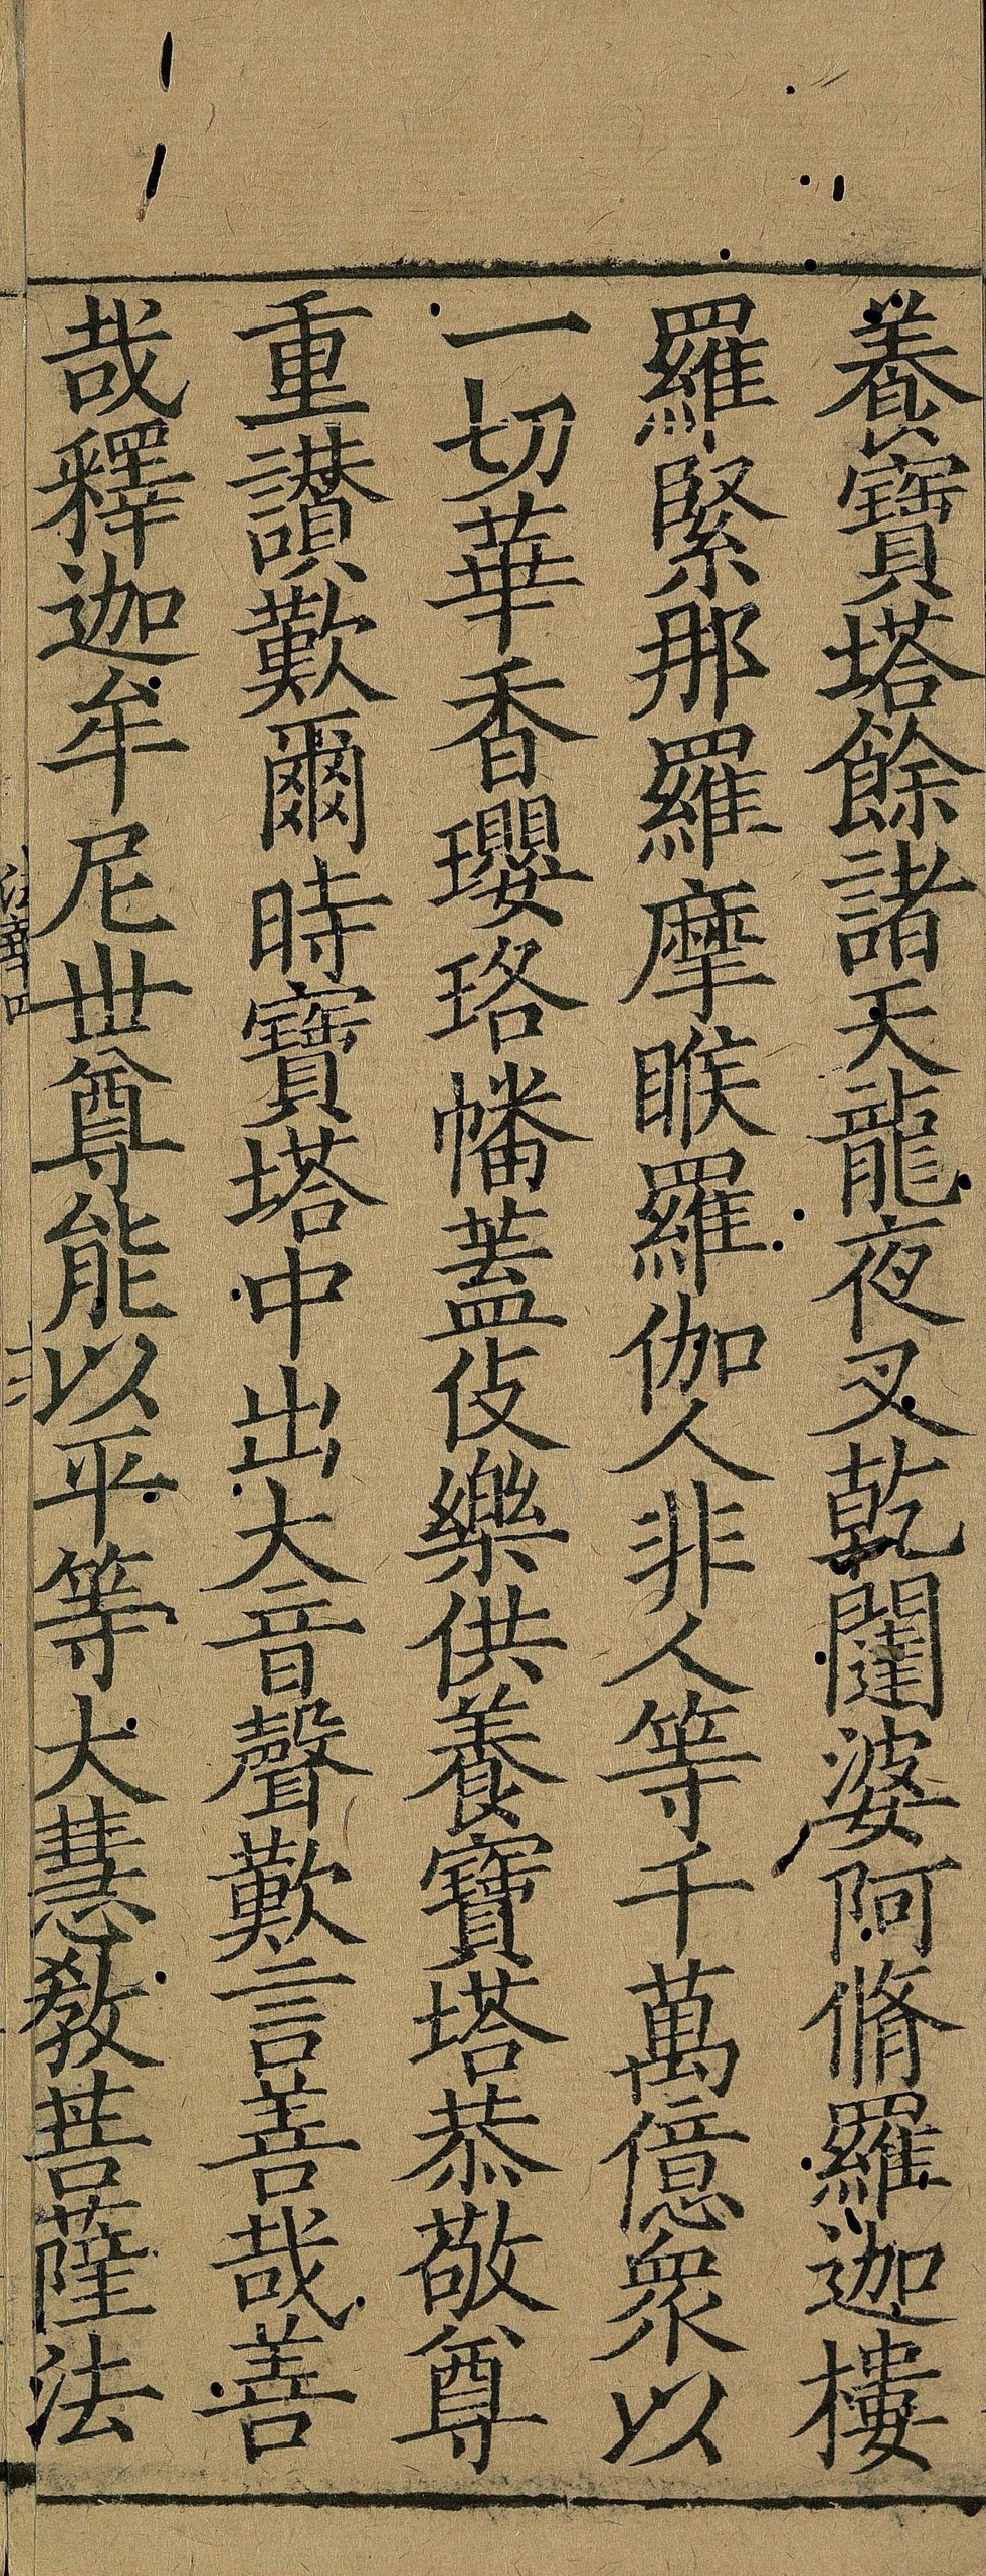 養寶塔餘諸天龍夜叉乾闥婆阿脩羅迦樓
羅緊那羅摩睺羅伽人非人等千萬億衆以
一切華香瓔珞幡蓋伎樂供養寶塔恭敬尊
重讚歎爾時寶塔中出大音聲歎言善哉善
哉釋迦牟尼世尊能以平等大慧教菩薩法
法華四